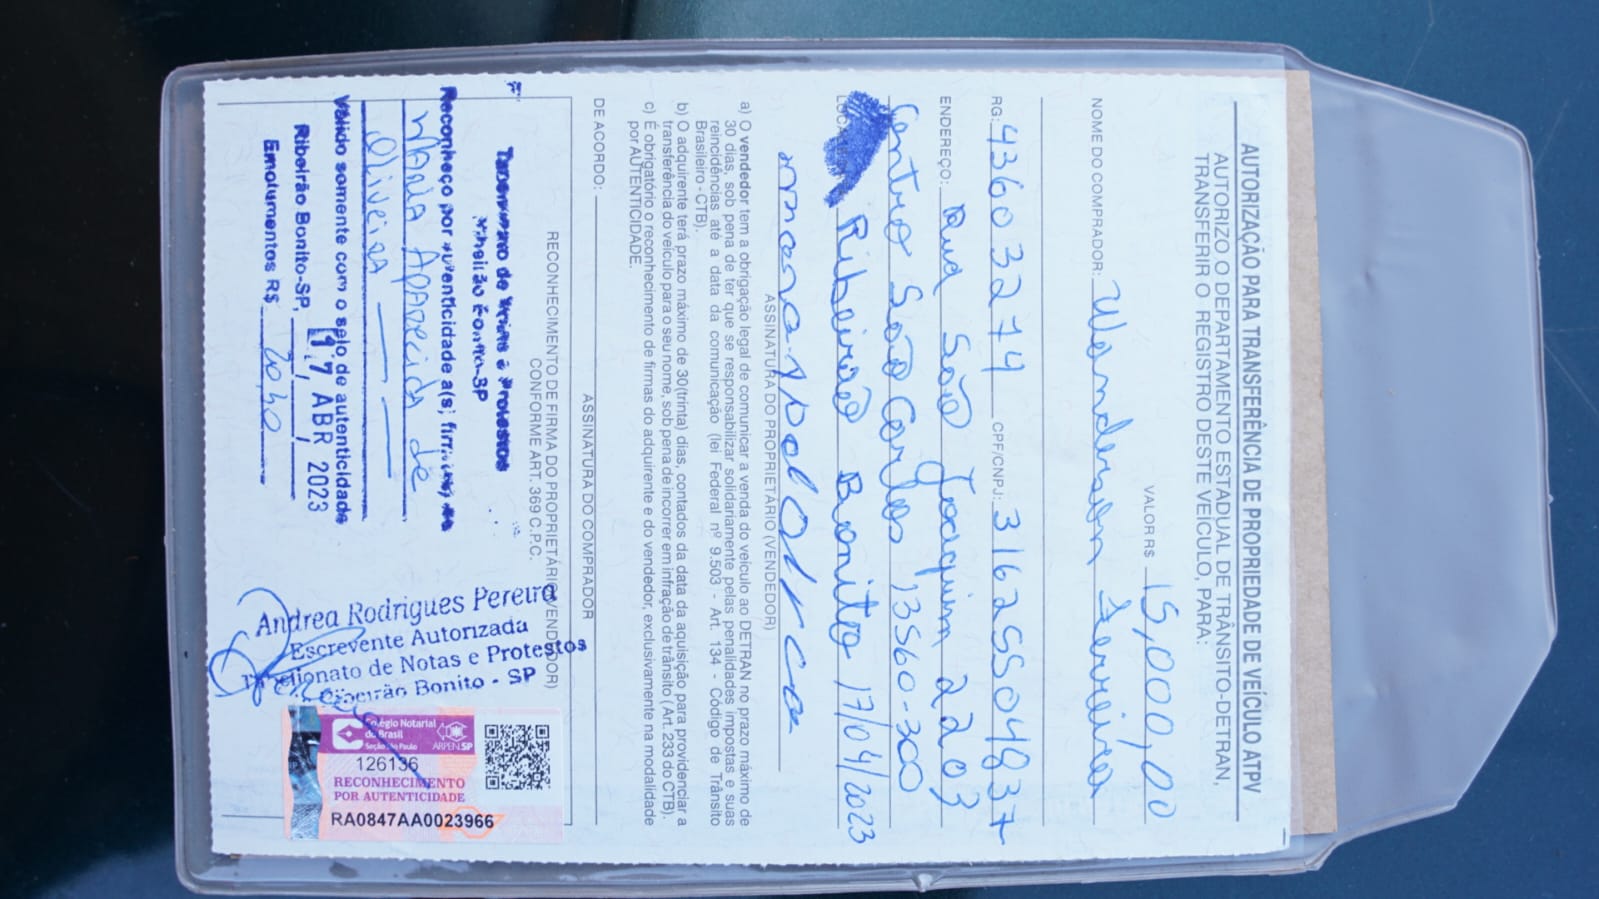 AUTORIZAÇÃO PARA TRANSFERÊNCIA DE PROPRIEDADE DE VEÍCULO ATPV
AUTORIZO O DEPARTAMENTO ESTADUAL DE TRÂNSITO-DETRAN,
TRANSFERIR O REGISTRO DESTE VEÍCULO, PARA:
VALOR R$ 15,000,00
NOME DO COMPRADOR: Wanderson Ferreira
RG: 436032774 CPF/CNPJ: 31625504837
ENDEREÇO: Rua São Joaquim 2203
Centro São Carlos 13560-300
Ribeirão Bonito 17/04/2023
ASSINATURA DO PROPRIETÁRIO (VENDEDOR)
a) O vendedor tem a obrigação legal de comunicar a venda do veículo ao DETRAN no prazo máximo de
30 dias, sob pena de ter que se responsabilizar solidariamente pelas penalidades impostas e suas
reincidências até a data da comunicação (lei Federal nº 9.503 - Art. 134 - Código de Trânsito
Brasileiro - CTB).
b) O adquirente terá prazo máximo de 30(trinta) dias, contados da data da aquisição para providenciar a
transferência do veículo para o seu nome, sob pena de incorrer em infração de trânsito (Art. 233 do CTB).
c) É obrigatório o reconhecimento de firmas do adquirente e do vendedor, exclusivamente na modalidade
por AUTENTICIDADE.
DE ACORDO:
ASSINATURA DO COMPRADOR
RECONHECIMENTO DE FIRMA DO PROPRIETÁRIO (VENDEDOR)
CONFORME ART. 369 C.P.C.
de Notas e Protestos
Ribeirão Bonito-SP
Reconheço por autenticidade a(s) firma(s) de
Maria Aparecida de
Oliveira
Válido somente com o selo de autenticidade
Ribeirão Bonito-SP, 17 ABR 2023
Emolumentos R$
Andrea Rodrigues Pereira
Escrevente Autorizada
Tabelionato de Notas e Protestos
Ribeirão Bonito - SP
Colégio Notarial
do Brasil
Seção São Paulo
ARPEN.SP
126136
RECONHECIMENTO
POR AUTENTICIDADE
RA0847AA0023966